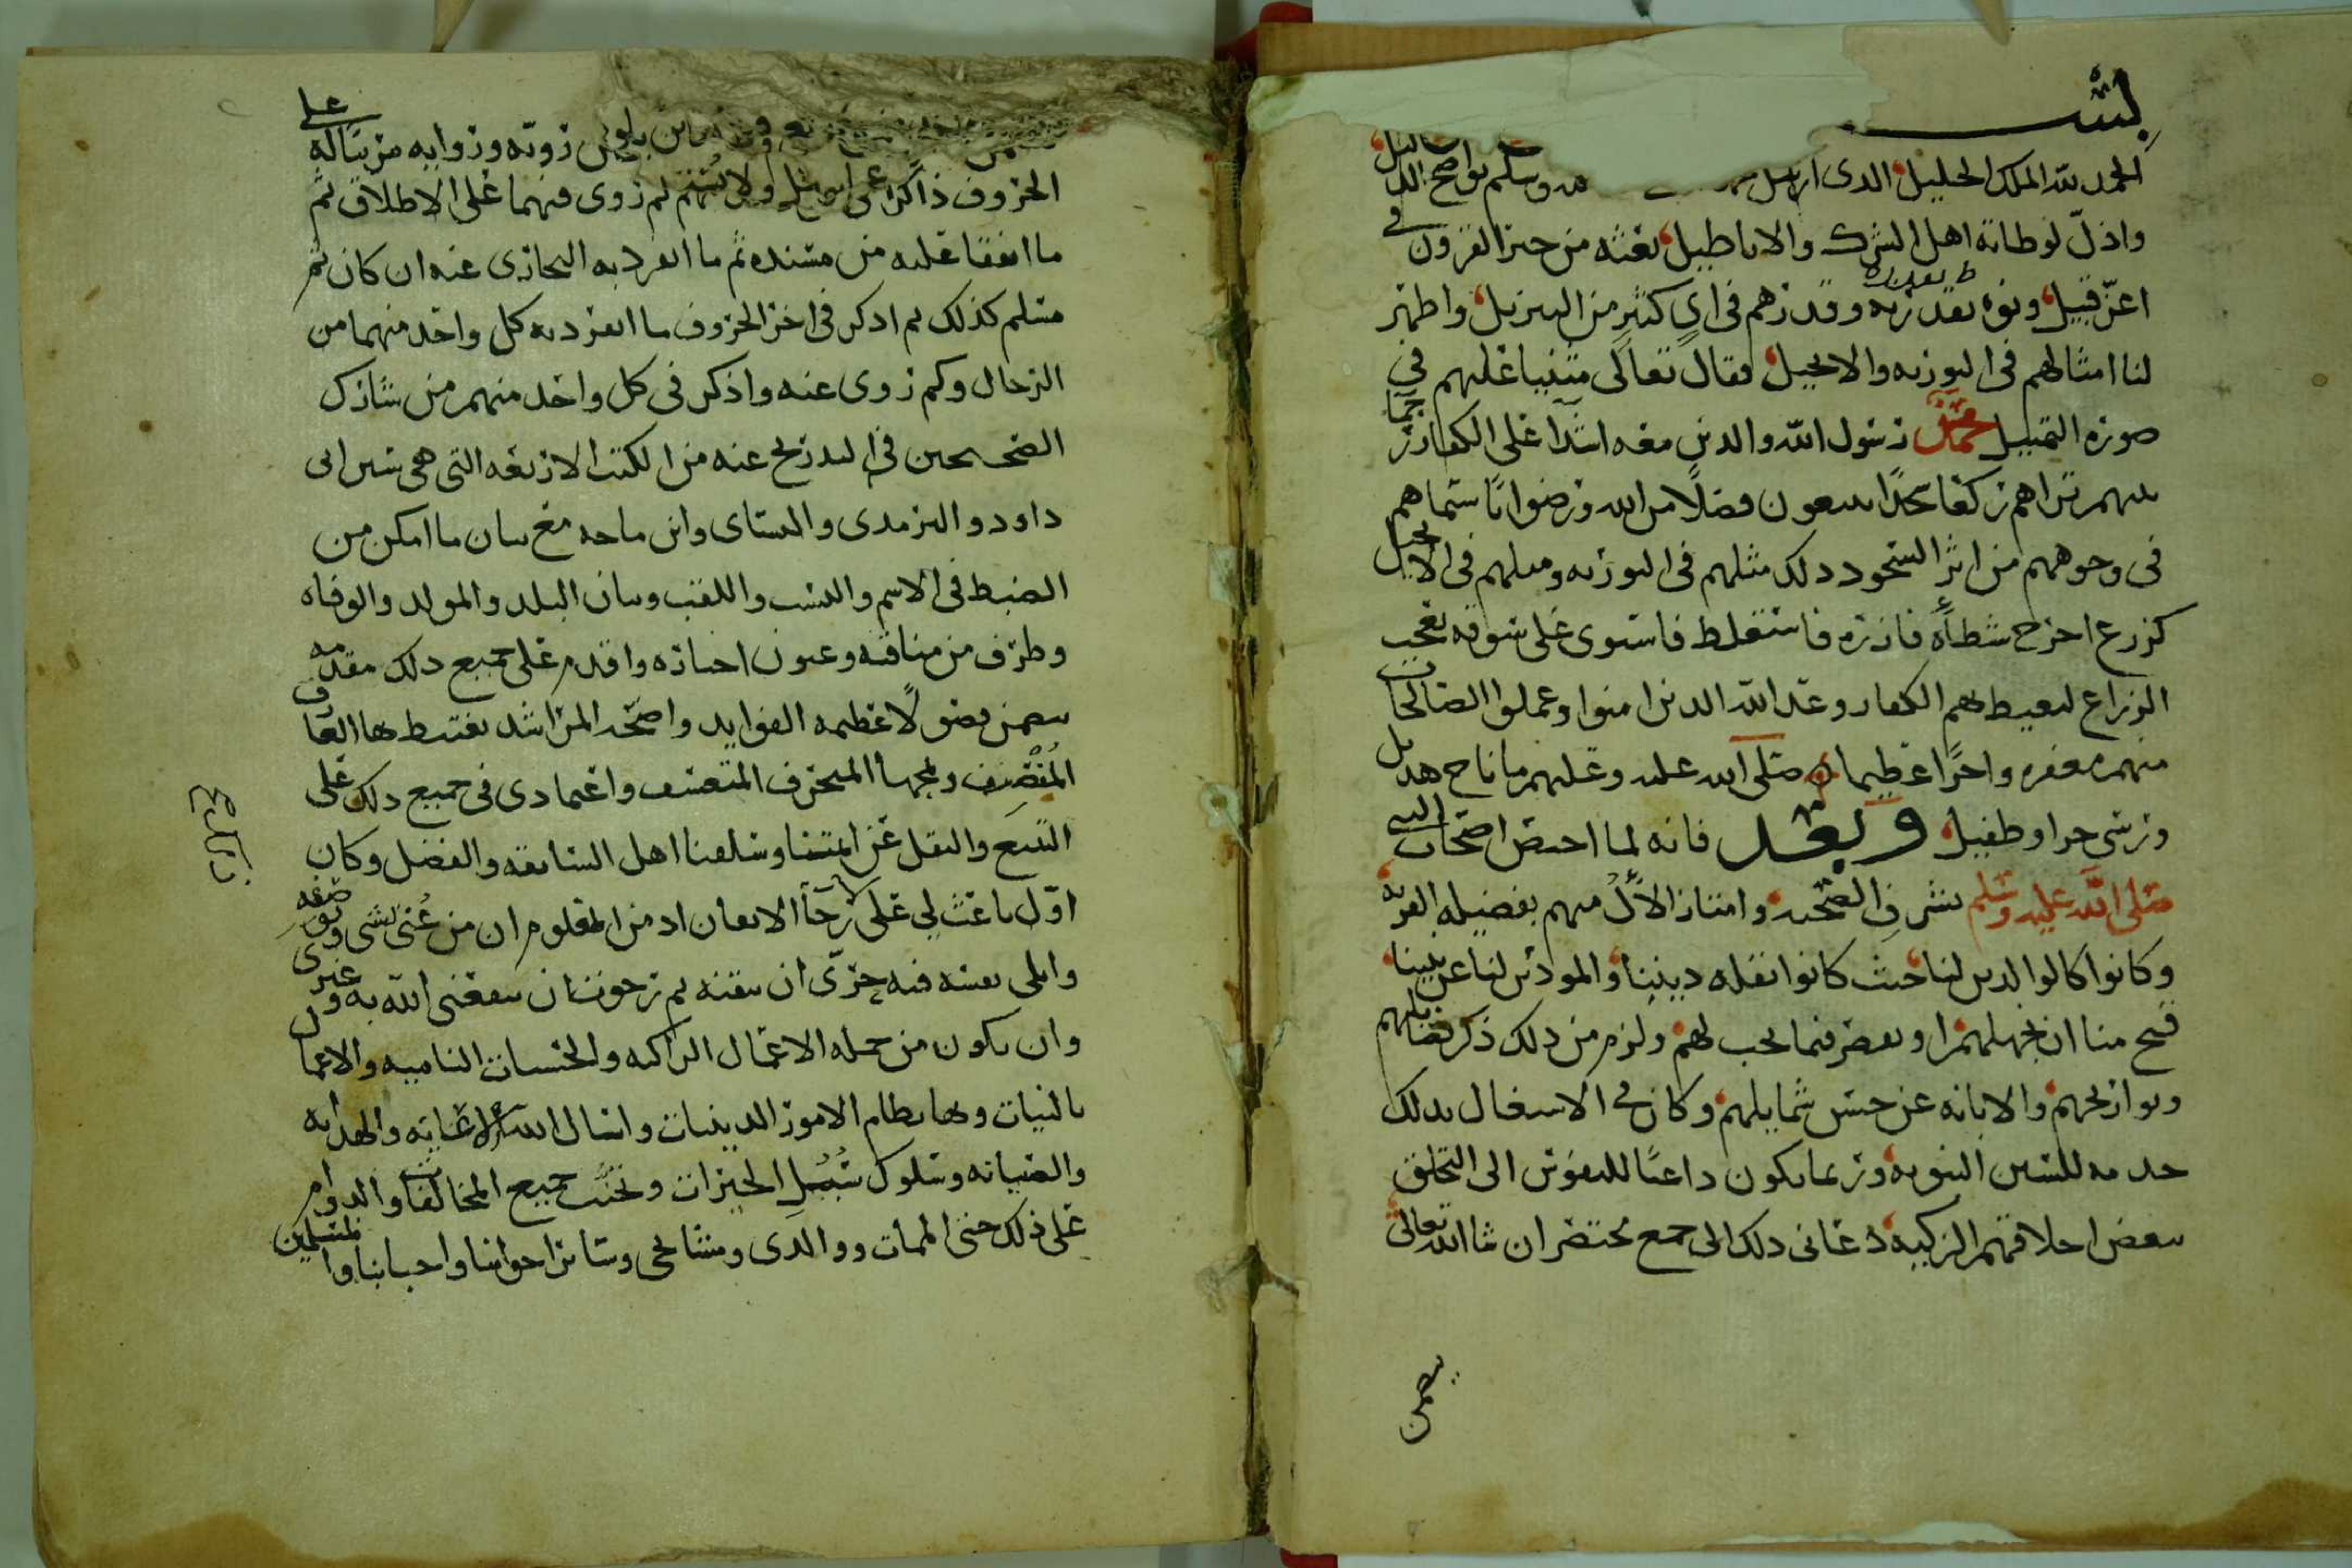 بسـ
الحمد لله الملك الجليل الذي ارسل وسلم بواضح الدليل
واذل لوطاته اهل الشرك والاباطيل بعثه من خير القرون في
اعز قبيل ونوه بقدره وقدرهم في اي كثير من التنزيل واظهر
لنا امثالهم في التوريه والانجيل فقال تعالى مثنيا عليهم في
صوره التمثيل محمد رسول الله والذين معه اشدا على الكفار رحما
بينهم تراهم ركعا سجدا يبتغون فضلا من الله ورضوانا سيماهم
في وجوههم من اثر السجود ذلك مثلهم في التوريه ومثلهم في الانجيل
كزرع اخرج شطأه فازره فاستغلظ فاستوى على سوقه يعجب
الزراع ليغيظ بهم الكفار وعد الله الذين امنوا وعملوا الصالحات
منهم مغفره واجرا عظيما صلى الله عليه وعليهم ما ناح هديل
ورسى حرا وطفيل وبعد فانه لما اختص اصحاب النبي
صلى الله عليه وسلم بشرف الصحبه وامتاز الال منهم بفضيله القربه
وكانوا كالوالدين لنا حيث كانوا نقله ديننا والمودين لنا عن نبينا
قبح منا ان نجهلهم او نقصر فيما يجب لهم ولزم من ذلك ذكر فضايلهم
وتواريخهم والابانه عن حسن شمايلهم وكان في الاشتغال بذلك
خدمه للسنن النبويه وربما يكون داعيا للنفوس الى التخلق
ببعض اخلاقهم الزكيه دعاني ذلك الى جمع مختصر ان شا الله تعالى
يتضمن
زوته وروايه من سأله على
الحروف ذاكرا لم روى منهما على الاطلاق ثم
ما اتفقا عليه من مسنده ثم ما انفرد به البخاري عنه ان كان ثم
مسلم كذلك ثم اذكر في اخر الحروف ما انفرد به كل واحد منهما من
الرجال وكم روى عنه واذكر في كل واحد منهم من شارك
الصحيحين في التخريج عنه من الكتب الاربعه التي هي سنن ابي
داود والترمذي والنساي وابن ماجه مع بيان ما امكن من
الضبط في الاسم والنسب واللقب وبيان البلد والمولد والوفاه
وطرف من مناقبه وعيون اخباره واقدم على جميع ذلك مقدمه
تتضمن فصولا عظيمه الفوايد واضحه المراشد يغتبط بها العارف
المنصف ويمجها المنحرف المتعسف واعتمادي في جميع ذلك على
التتبع والنقل عن ايمتنا وسلفنا اهل السابقه والفضل وكان
اول باعث لي على رجا الانتفاع اذ من المعلوم ان من عني بشي وصفه
وابلى نفسه فيه حري ان يتقنه ثم رجوت ان ينفعني الله به وغيري
وان يكون من جمله الاعمال الزاكيه والحسنات الناميه والاعمال
بالنيات وبها نظام الامور الدينيات واسال الله الرعايه والهدايه
والصيانه وسلوك سبل الخيرات وتجنب جميع المخالفات والدوام
على ذلك حتى الممات ووالدي ومشايخي وساير اخواننا واحبابنا والمسلمين